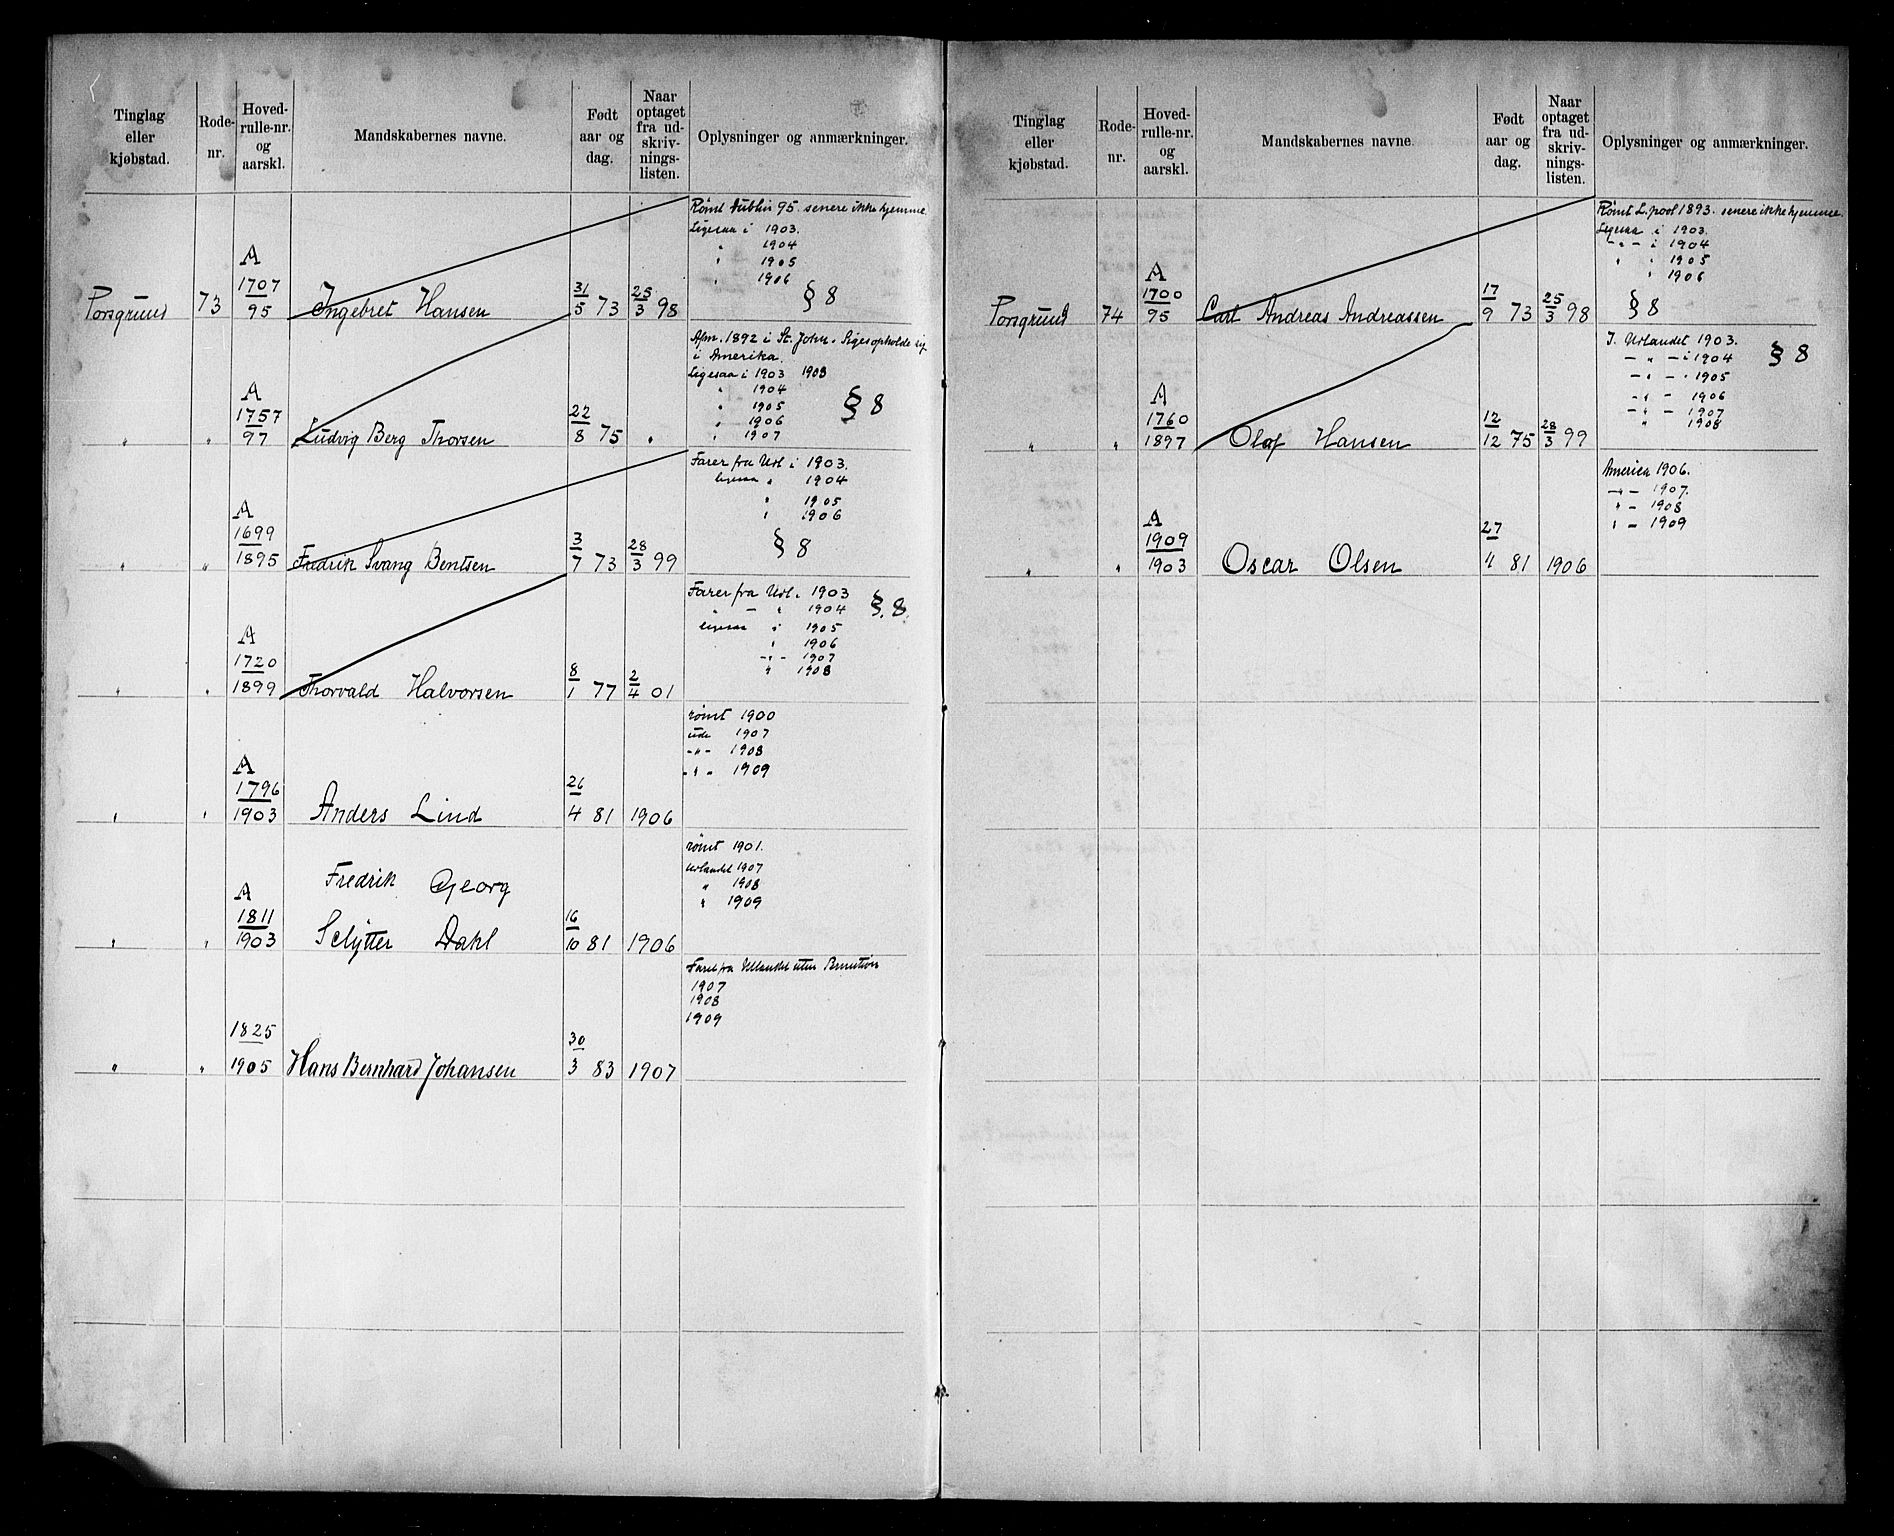 Tinglag eller kjøbstad.
Rode-nr.
Hoved-rulle-nr. og aarskl.
Mandskabernes navne.
Født aar og dag.
Naar optaget fra ud-skriv-nings-listen.
Oplysninger og anmærkninger.
Rømt Dublin 95. senere ikke hjemme
Ligesaa i 1903.
" 1904
" 1905
" 1906
Porsgrund 73 A 1707/95 Ingebret Hansen 31/5 73 25/3 98 § 8
Afm. 1892 i St. John.
i Amerika.
Ligesaa i 1903 1903
" 1904
" 1905 § 8
" 1906
" 1907
" " A 1757/97 Ludvig Berg Thorsen 22/8 75 "
Farer fra Udl i 1903.
ligesaa " 1904
" 1905
" 1906
§ 8
" " A 1699/1895 Fredrik Svang Bentsen 3/7 73 28/3 99
Farer fra Udl. 1903 § 8.
" — " 1904
ligesaa i 1905
" 1906
-"- 1907
" 1908
" " A 1720/1899 Thorvald Halvorsen 8/1 77 2/4 01
rømt 1900
ude 1907
-"- 1908
-"- 1909
" " A 1796/1903 Anders Lind 26/4 81 1906
rømt 1901.
Udlandet 1907
" 1908
" 1909
Fredrik Georg
" " A 1811/1903 Selytter Dahl 16/10 81 1906
Faret fra Udlandet uten
1907
1908
1909
" " 1825/1905 Hans Bernhard Johansen 30/3 83 1907
Tinglag eller kjøbstad.
Rode-nr.
Hoved-rulle-nr. og aarskl.
Mandskabernes navne.
Født aar og dag.
Naar optaget fra ud-skriv-nings-listen.
Oplysninger og anmærkninger.
Rømt L.pool 1893. senere ikke hjemme.
Ligesaa i 1903.
-"- i 1904
" " 1905
" 1906
Porsgrund 74 A 1700/95 Carl Andreas Andreassen 17/9 73 25/3 98 § 8
I Udlandet 1903.
— " — i 1904 § 8
— " — " 1905
-"- 1906
-"- 1907
" 1908
" " A 1760/1897 Olaf Hansen 12/12 75 28/3 99
America 1906.
-"- 1907.
"- 1908
"- 1909
" " A 1909/1903 Oscar Olsen 27/4 81 1906